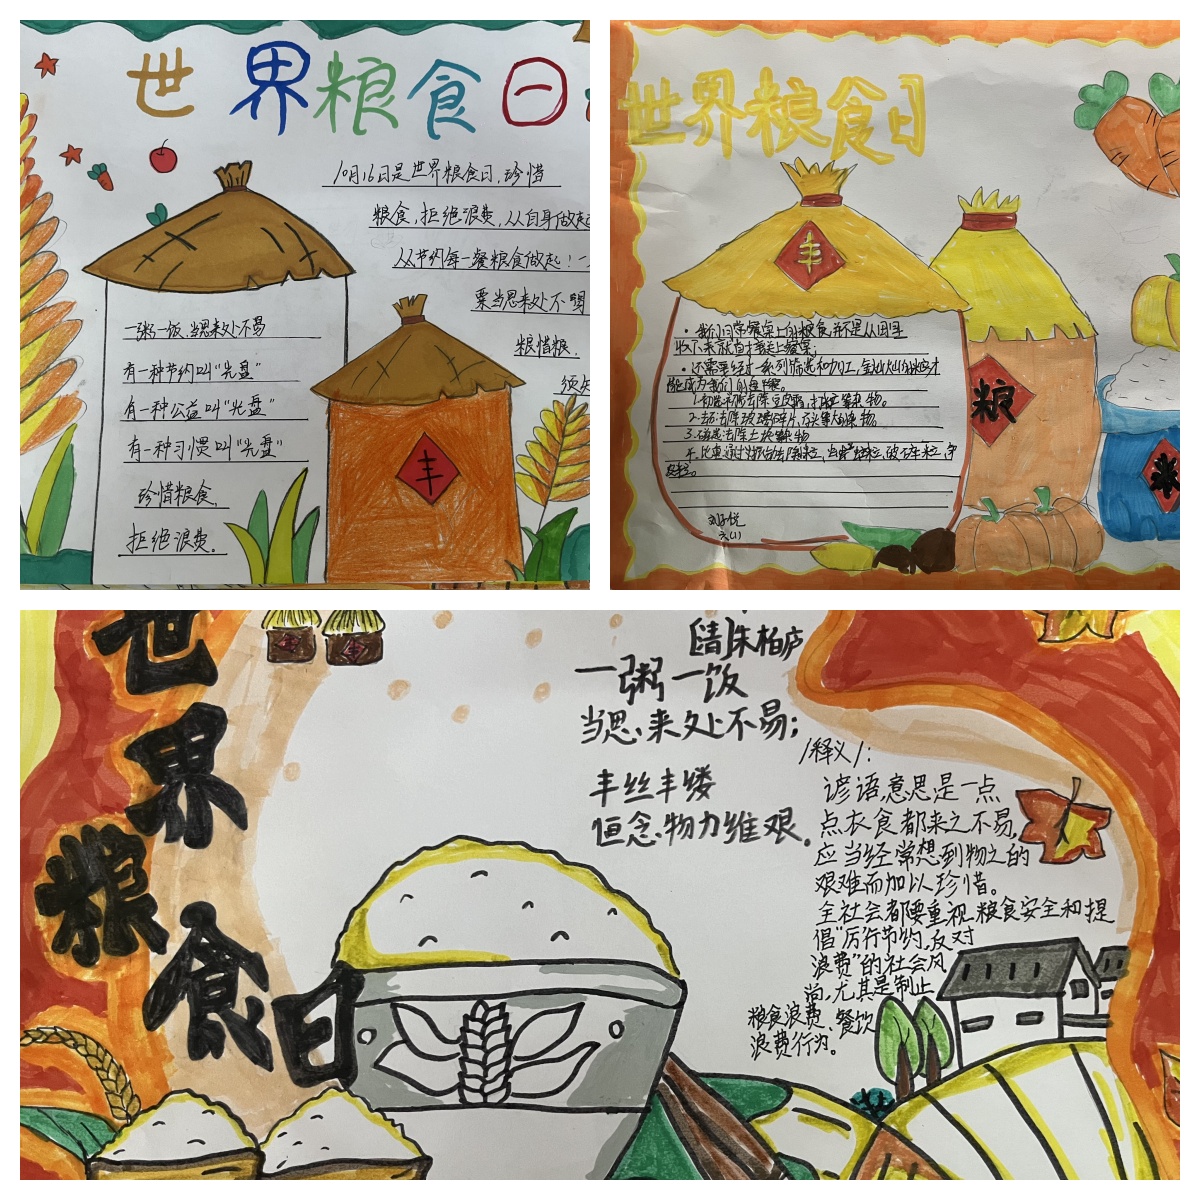 世界粮食日
10月16日是世界粮食日，珍惜
粮食，拒绝浪费，从自身做起
从节约每一餐粮食做起！一
粟当思来处不明
粮惜粮．
须知
一粥一饭，当思来处不易
有一种节约叫“光盘”
有一种公益叫“光盘”
有一种习惯叫“光盘”
珍惜粮食，
拒绝浪费。
丰
世界粮食日
丰
粮
米
·我们日常餐桌上的粮食，并不是从田里
收下来就直接送上餐桌；
·还需要经过一系列筛选和加工，
能成为我们的
3.磁选：去除土块等杂物
六（1）
世界粮食日
丰
丰
[清]朱柏庐
一粥一饭
当思来处不易；
半丝半缕
恒念物力维艰。
/释义/：
谚语，意思是一点
点衣食都来之不易，
应当经常想到物之的
艰难而加以珍惜。
全社会都要重视粮食安全和提
倡“厉行节约，反对
浪费”的社会风
尚，尤其是制止
粮食浪费、餐饮
浪费行为。